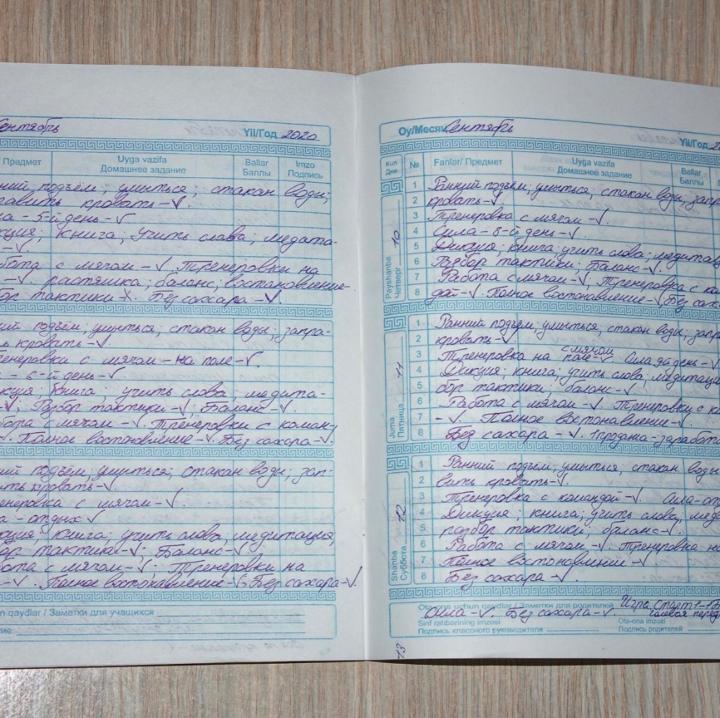 Сентябрь Yil/Год 2020
Предмет Uyga vazifa Домашнее задание Ballar Баллы Imzo Подпись
ний подъём; умыться; стакан воды;
равить кровать-✓.
ла - 5-й день-✓
кция; книга; учить слова; медита-
-✓.
бота с мячом-✓. Тренировки на
-✓. растяжка; баланс; востоновление-
бор тактики-✓. Без сахара-✓.
ний подъём; умыться; стакан воды; запра-
ь кровать-✓.
ренеровка с мячом - на поле-✓.
а - 6-й день-✓
кция; книга; учить слова; медита-
-✓; Разбор тактики-✓; Баланс-✓.
бота с мячом-✓. Тренеровки с коману
-✓. Полное востоновление-✓. Без сахара-✓.
ний подъём умыться; стакан воды; зап-
ить кровать-✓
ренеровка с мячом-✓.
а - отдых✓
кция; книга; учить слова, медитация,
бор тактики-✓; Баланс-✓.
бота с мячом-✓; Тренеровки на
-✓. Полное востоновление-✓. Без сахара-✓
un qaydlar / Заметки для учащихся
Oy/Месяц Сентябрь Yil/Год
Kun Дни № Fanlar/ Предмет Uyga vazifa Домашнее задание Ballar Баллы
Payshanba Четверг 10
1 Ранний подъем, умыться, стакан воды, запр
2 кровать-✓
3 Тренеровка с мячом-✓.
4 Сила - 8-й день-✓
5 Дикция; книга, учить слова; медитав
6 Разбор тактики; Баланс-✓.
7 Работа с мячом-✓; Тренеровка с ка
8 дой-✓. Полное востоновление-✓ Без саха
Juma Пятница 11
1 Ранний подъем, умыться, стакан воды; зап
2 кровать-✓
3 Тренеровка на с мячом поле-✓ Сила 9й день-✓
4 Дикция; книга, учить слова, медитаци
5 бор тактики, баланс-✓.
6 Работа с мячом-✓ Тренеровки с к
7 -✓. Полное востоновление-✓.
8 Без сахара-✓. Продажа-заработ
Shanba Суббота 12
1 Ранний подъем, умыться, стакан воды
2 вить кровать-✓.
3 Тренеровка с командой-✓ Сила-от
4 Дикция; книга; учить слова, мед
5 разбор тактики; баланс-✓.
6 Работа с мячом-✓. Тренеровка на
7 Полное востоновление-✓
8 Без сахара-✓.
chun qaydlar / Заметки для родителей Игра старт
13 сила-✓. Без сахара-✓. голевая перед
Sinf rahbarining imzosi Ota-ona imzosi
Подпись классного руководителя Подпись родителей